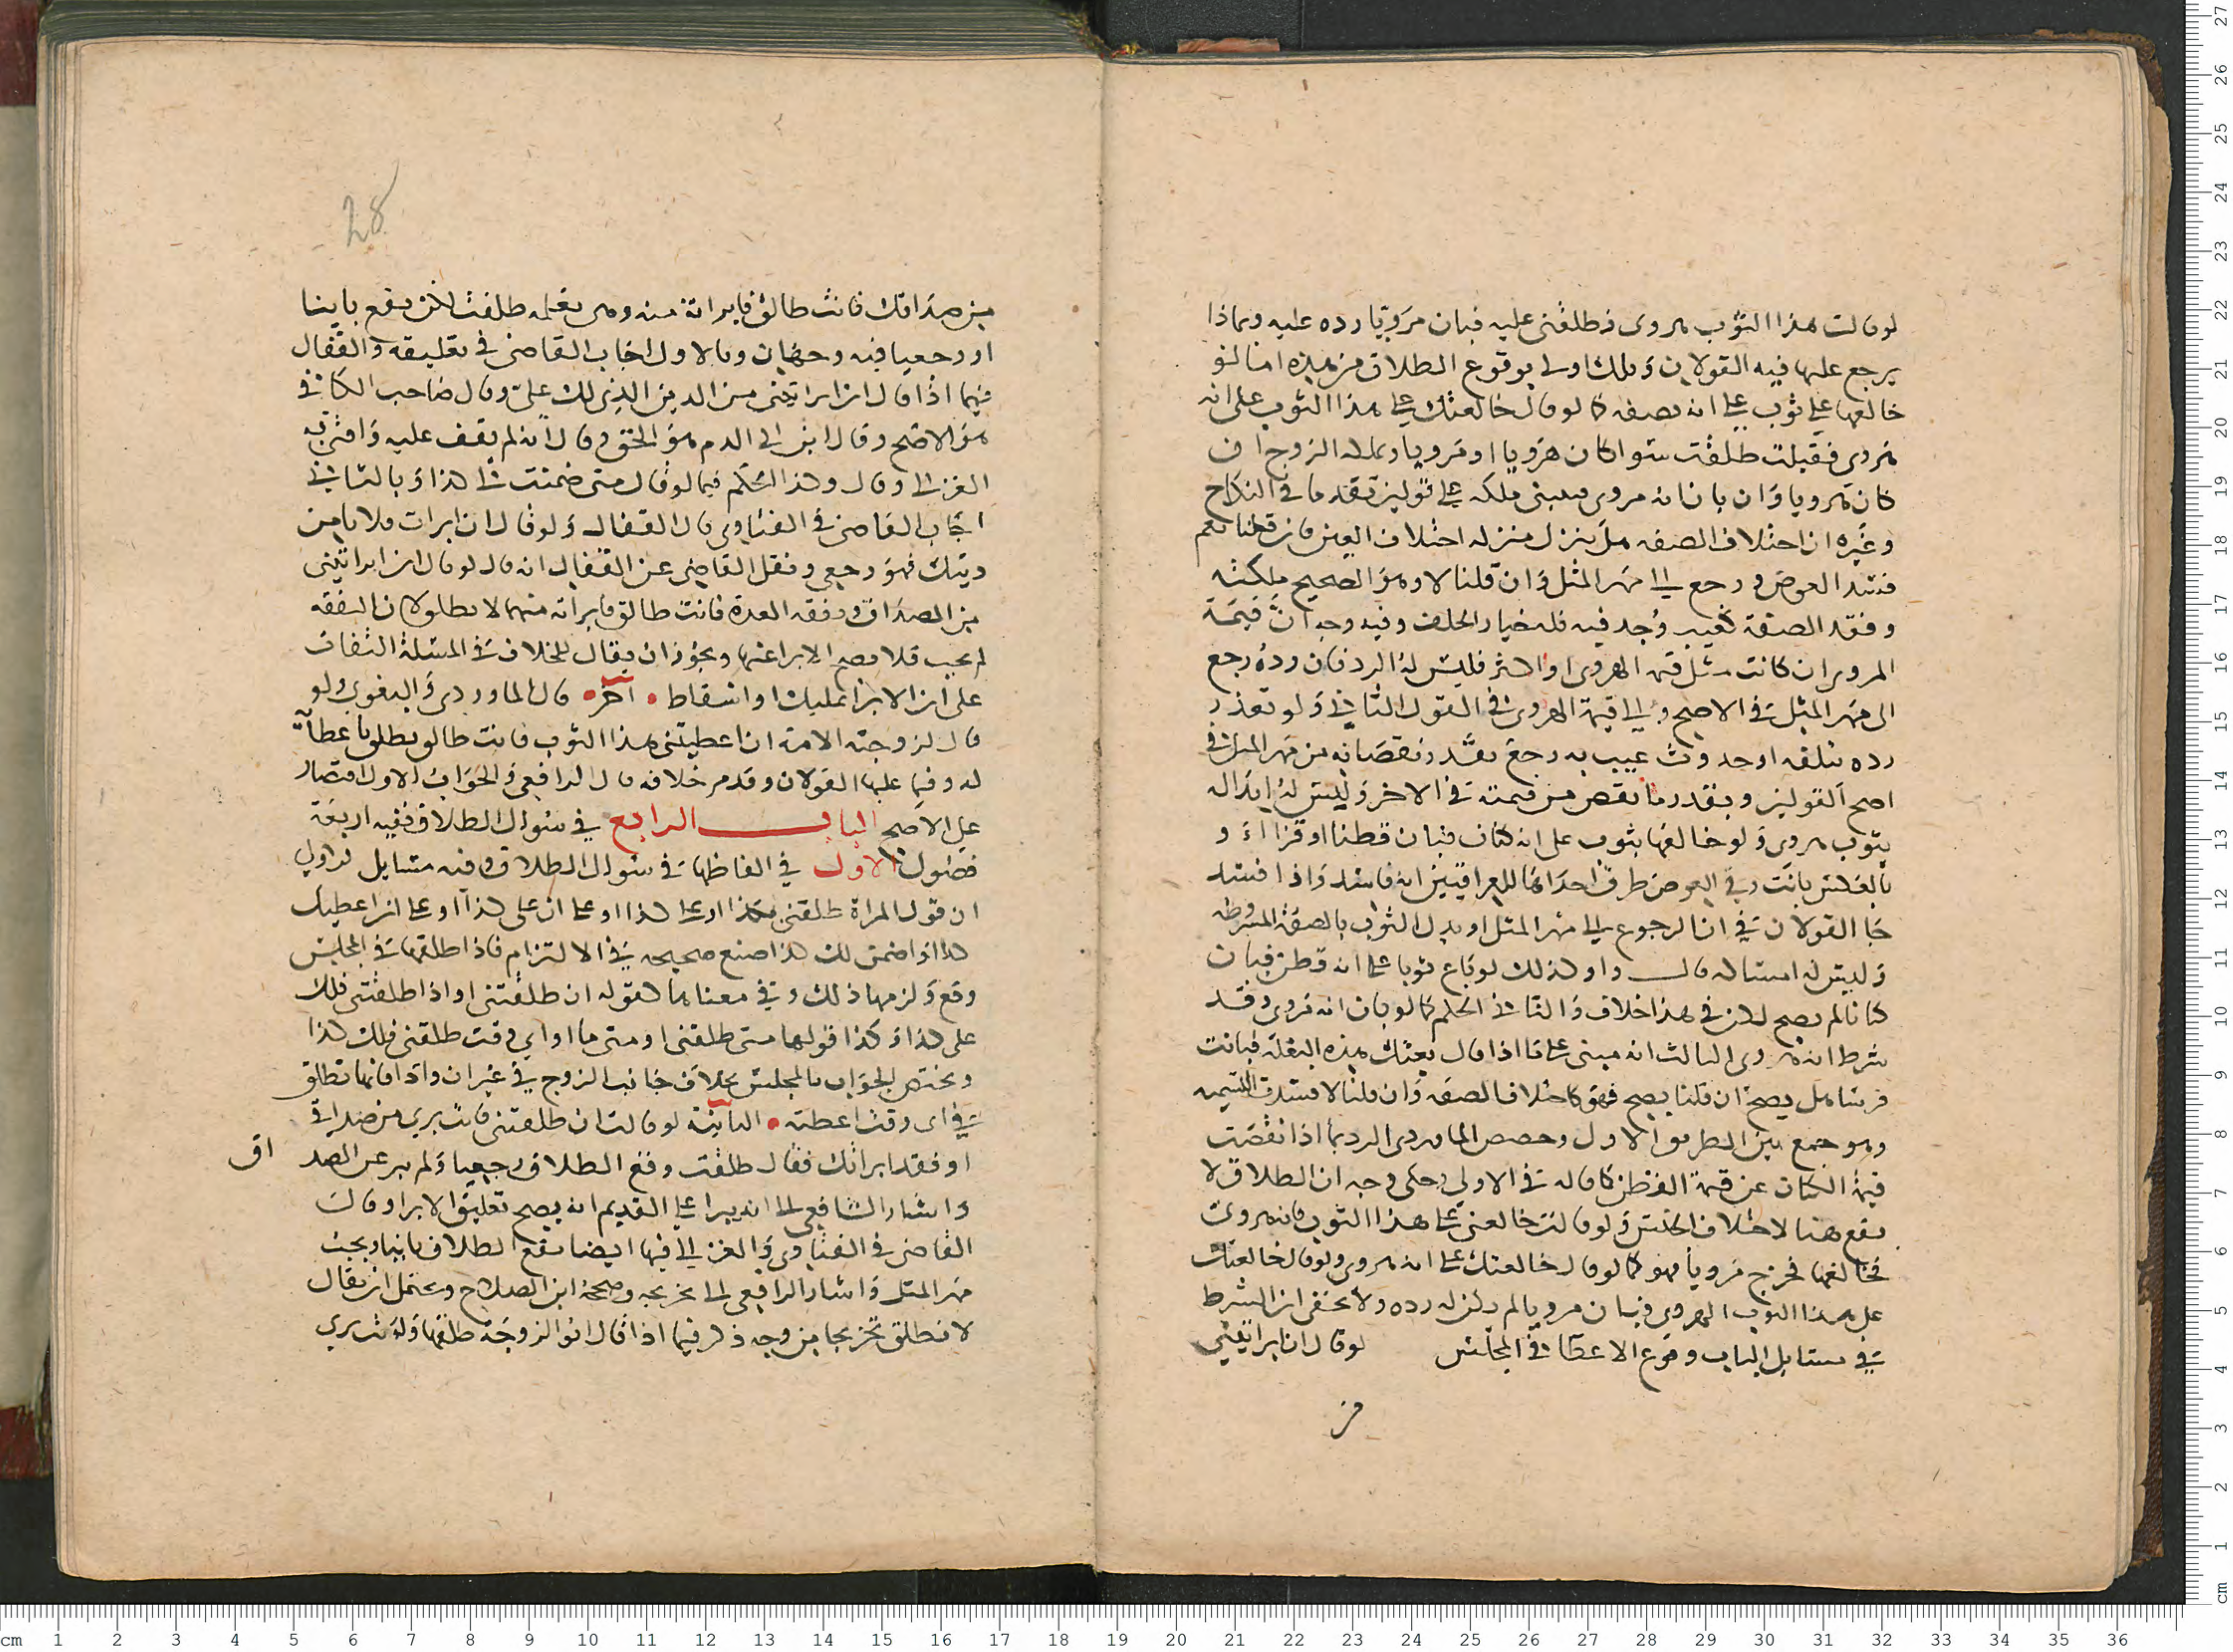 لو قالت هذا الثوب هروى فطلقنى عليه فبان مرويا رده عليه وبماذا
يرجع عليها فيه القولان وقلك اولى بوقوع الطلاق من هذه اما لو
خالعها على ثوب على انه بصفه كما لو قال خالعتك على هذا الثوب على انه
هروى فقبلت طلقت سوا كان هرويا او مرويا وملك الزوج ان
كان هرويا وان بان انه مروى فينبنى ملكه على قولين تقدما فى النكاح
وغيره ان اختلاف الصفه هل ينزل منزله اختلاف العين فان قلنا نعم
فسد العوض ورجع الى مهر المثل وان قلنا لا وهو الصحيح ملكه
وفقد الصفة كعيب وجد فيه فله خيار الخلف وفيه وجه ان قيمة
المروى ان كانت مثل قيمة الهروى او اكثر فليس له الرد فان رده رجع
الى مهر المثل فى الاصح والى قيمة الهروى فى القول الثانى ولو تعذر
رده بتلفه او حدوث عيب به رجع بقدر نقصانه من مهر المثل فى
اصح القولين وبقدر ما نقص من قيمته فى الاخر وليس له ابداله
بثوب هروى ولو خالعها بثوب على انه كتان فبان قطنا او قزا او
بالعكس بانت وفى العوض طرق احداها للعراقيين انه فاسد واذا فسد
جا القولان فى ان الرجوع الى مهر المثل او بدل الثوب بالصفة المشروطه
وليس له امساكه قالـــــوا وكذلك لو باع ثوبا على انه قطن فبان
كتانا لم يصح لكن فى هذا خلاف والثانى الحكم كما لو بان انه مروى وقد
شرط انه هروى الثالث انه مبنى على ما اذا قال بعتك هذه البغلة فبانت
فرسا هل يصح ان قلنا يصح فهو كاختلاف الصفة وان قلنا لا فسدت التسميه
وهو جمع بين الطريق الاول وخصص الماوردى الرد بما اذا نقصت
قيمة الكتان عن قيمة القطن كما قاله فى الاولى وحكى وجه ان الطلاق لا
يقع هنا لاختلاف الجنس ولو قالت خالعنى على هذا الثوب فانه هروى
فخالعها فخرج مرويا فهو كما لو قال خالعتك على انه هروى ولو قال خالعتك
على هذا الثوب الهروى فبان مرويا لم يكن له رده ولا يخفى ان الشرط
فى مسايل الباب وقوع الاعطا فى المجلس لو قال ان ابراتينى
من
28
من صداقك فانت طالق فابراته منه وهى تعلمه طلقت لكن يقع باينا
او رجعيا فيه وجهان وبالاول اجاب القاضى فى تعليقه والقفال
فيما اذا قال ان ابراتينى من الدين الذى لك على وقال صاحب الكافى
هو الاصح وقال ابن ابى الدم هو الحق وقال انه لم يقف عليه وافتى به
الغزالى وقال وكذا الحكم فيما لو قال متى ضمنت لى كذا وبالثانى
اجاب القاضى فى الفتاوى قال القفال ولو قال ان ابرات فلانا من
دينك فهو رجعى ونقل القاضى عن القفال انه قال لو قال ان ابراتينى
من الصداق ونفقه العدة فانت طالق فابراته منهما لا تطلق لان النفقه
لم تجب فلا يصح الابرا عنها ويجوز ان يقال للخلاف فى المسئلة التفات
على ان الابرا تمليك او اسقاط • اخر • قال الماوردى والبغوى ولو
قال لزوجته الامة ان اعطيتنى هذا الثوب فانت طالق تطلق باعطائه
له وفيما عليها القولان وقدم خلافه قال الرافعى والجواب الاول اقتصار
على الاصح البابــــــ الرابع فى سوال الطلاق وفيه اربعة
فصول الاول فى الفاظها فى سوال الطلاق وفيه مسايل الاولى
ان قول المراة طلقنى بكذا او على كذا او على ان على كذا او على ان اعطيك
كذا او اضمن لك كذا صيغ صحيحه فى الالتزام فاذا طلقها فى المجلس
وقع ولزمها ذلك وفى معناها كقوله ان طلقتنى او اذا طلقتنى فلك
على كذا وكذا قولها متى طلقتنى او متى ما او اى وقت طلقتنى فلك كذا
ويختص الجواب بالمجلس بخلاف جانب الزوج فى غير ان واذا فانها تطلق
فى اى وقت اعطته • الثانية لو قالت ان طلقتنى فانت برى من صداقى
او فقد ابراتك فقال طلقت وقع الطلاق رجعيا ولم يبر عن الصد اق
واشار الشافعى الى انه يبرا على القديم انه يصح تعليق الابرا وقال
القاضى فى الفتاوى والغزالى فيها ايضا يقع الطلاق باينا ويجب
مهر المثل واشار الرافعى الى تخريجه وصححه ابن الصلاح ويحتمل ان يقال
لا تطلق تخريجا من وجه ذكر فيما اذا قال ابو الزوجة طلقها وانت برى